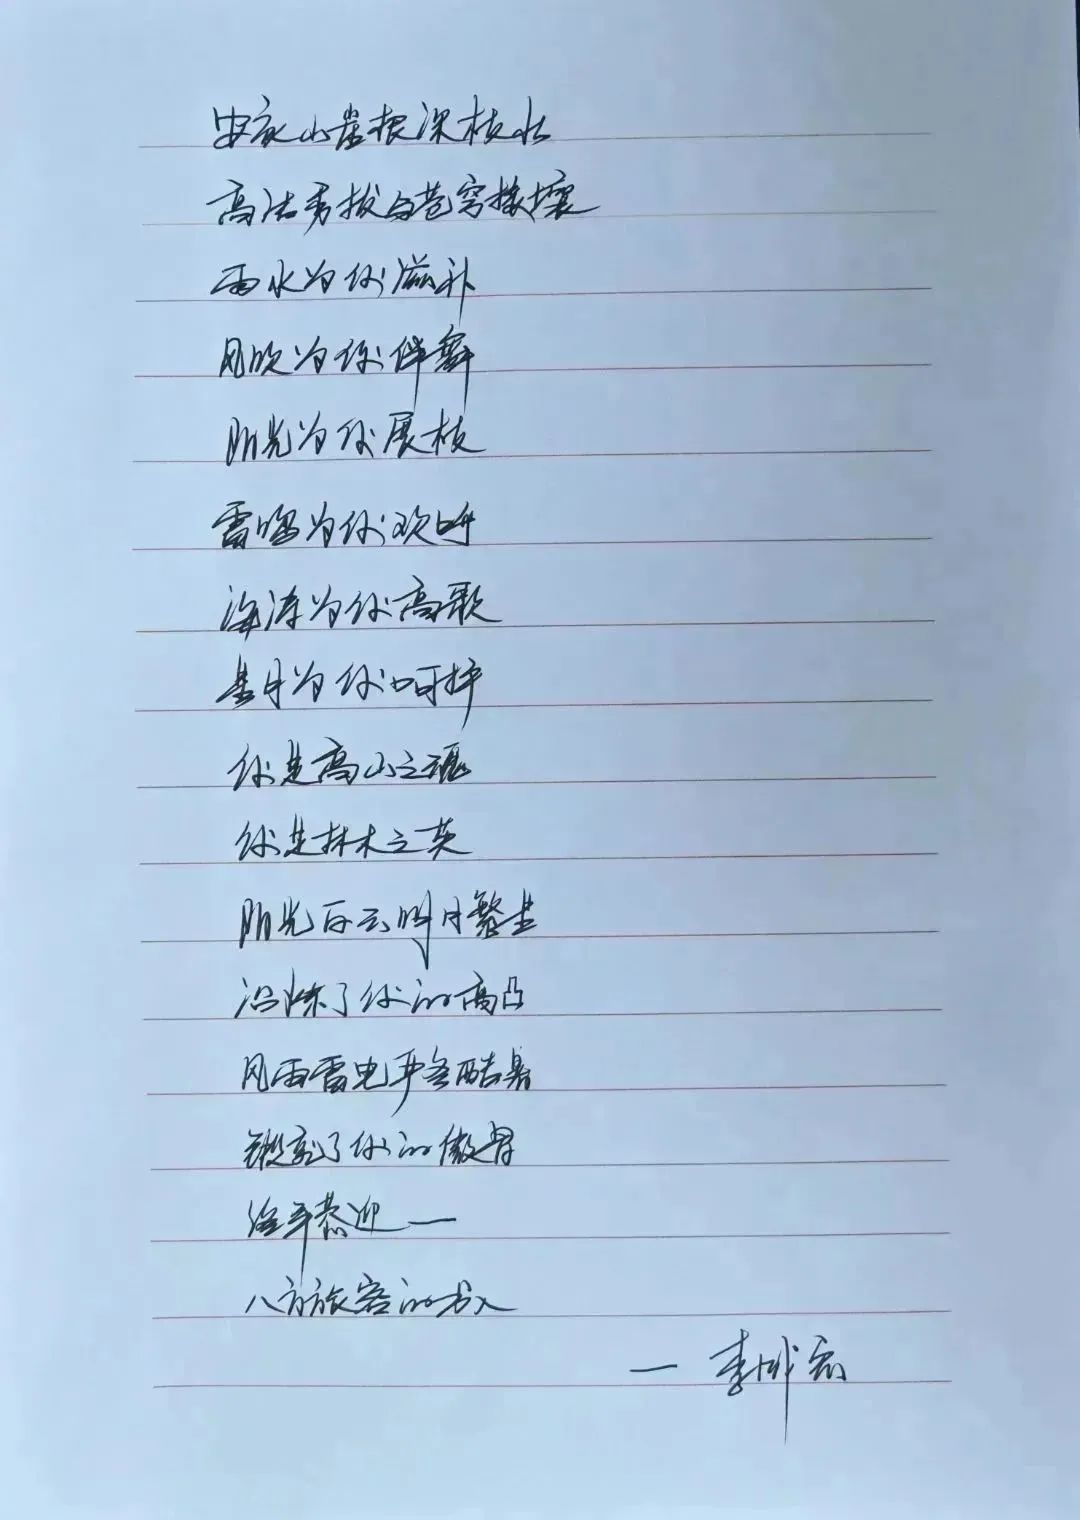 安家山崖根深枝壮
高洁秀拔与苍穹接壤
雨水为你滋补
风吹为你伴舞
阳光为你展枝
雷鸣为你欢呼
海涛为你高歌
星月为你呵护
你是高山之魂
你是林木之英
阳光白云明月繁星
沿炼了你的高凸
风雨雷电严冬酷暑
锻就了你的傲骨
终年恭迎——
八方旅客的出入
— 李成